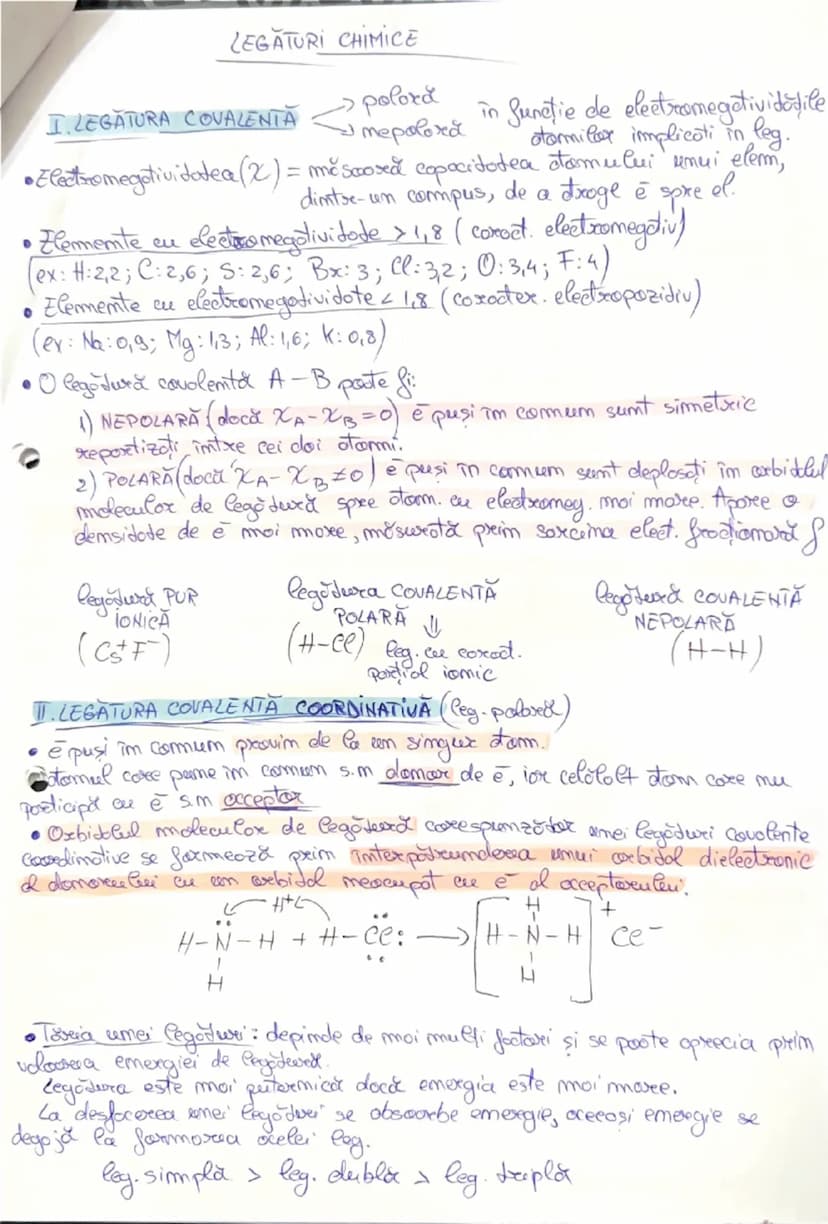 LEGĂTURI CHIMICE
I. LEGĂTURA COVALENTĂ → polară în funcție de electronegativitățile
→ nepolară atomilor implicati în leg.
• Electronegativitatea (χ) = măsoară capacitatea atomului unui elem,
dintr-un compus, de a trage ē spre el.
• Elemente cu electronegativitate > 1,8 (caract. electronegativ)
(ex: H:2,2; C:2,6; S:2,6; Br:3; Cl:3,2; O:3,4; F:4)
• Elemente cu electronegativitate < 1,8 (caracter. electropozitiv)
(ex: Na:0,9; Mg:1,3; Al:1,6; K:0,8)
• O legătură covalentă A-B poate fi:
1) NEPOLARĂ (dacă χA-χB=0) ē puși în comun sunt simetric
repartizați între cei doi atomi.
2) POLARĂ (dacă χA-χB≠0) ē puși în comun sunt deplasați în orbitalul
molecular de legătură spre atom. cu electroneg. mai mare. Apare o
densitate de ē mai mare, măsurată prin sarcina elect. fracționară δ
legătură PUR legătura COVALENTĂ legătură COVALENTĂ
IONICĂ POLARĂ ⇓ NEPOLARĂ
(Cs+F-) (H-Cl) leg. cu caract. (H-H)
parțial ionic
II. LEGĂTURA COVALENTĂ COORDINATIVĂ (leg. polară)
• ē puși în comun provin de la un singur atom.
• Atomul care pune în comun s.n donor de ē, iar celălalt atom care nu
participă cu ē s.n acceptor
• Orbitalul molecular de legătură corespunzător unei legături covalente
coordinative se formează prin interpătrunderea unui orbital dielectronic
al donorului cu un orbital neocupat cu ē al acceptorului.
H+ H
H-N-H + H-Cl: → [H-N-H]+ Cl-
H H
• Tăria unei legături: depinde de mai mulți factori și se poate aprecia prin
valoarea energiei de legătură.
Legătura este mai puternică dacă energia este mai mare.
La desfacerea unei legături se absoarbe energie, aceeași energie se
degajă la formarea acelei leg.
leg. simplă > leg. dublă > leg. triplă